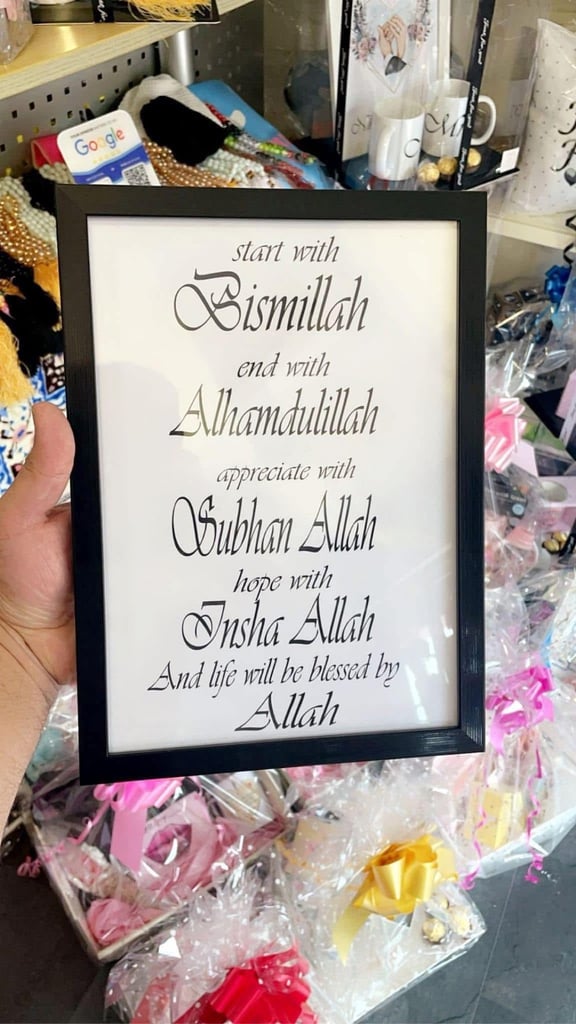 Google
start with
Bismillah
end with
Alhamdulillah
appreciate with
Subhan Allah
hope with
Insha Allah
And life will be blessed by
Allah